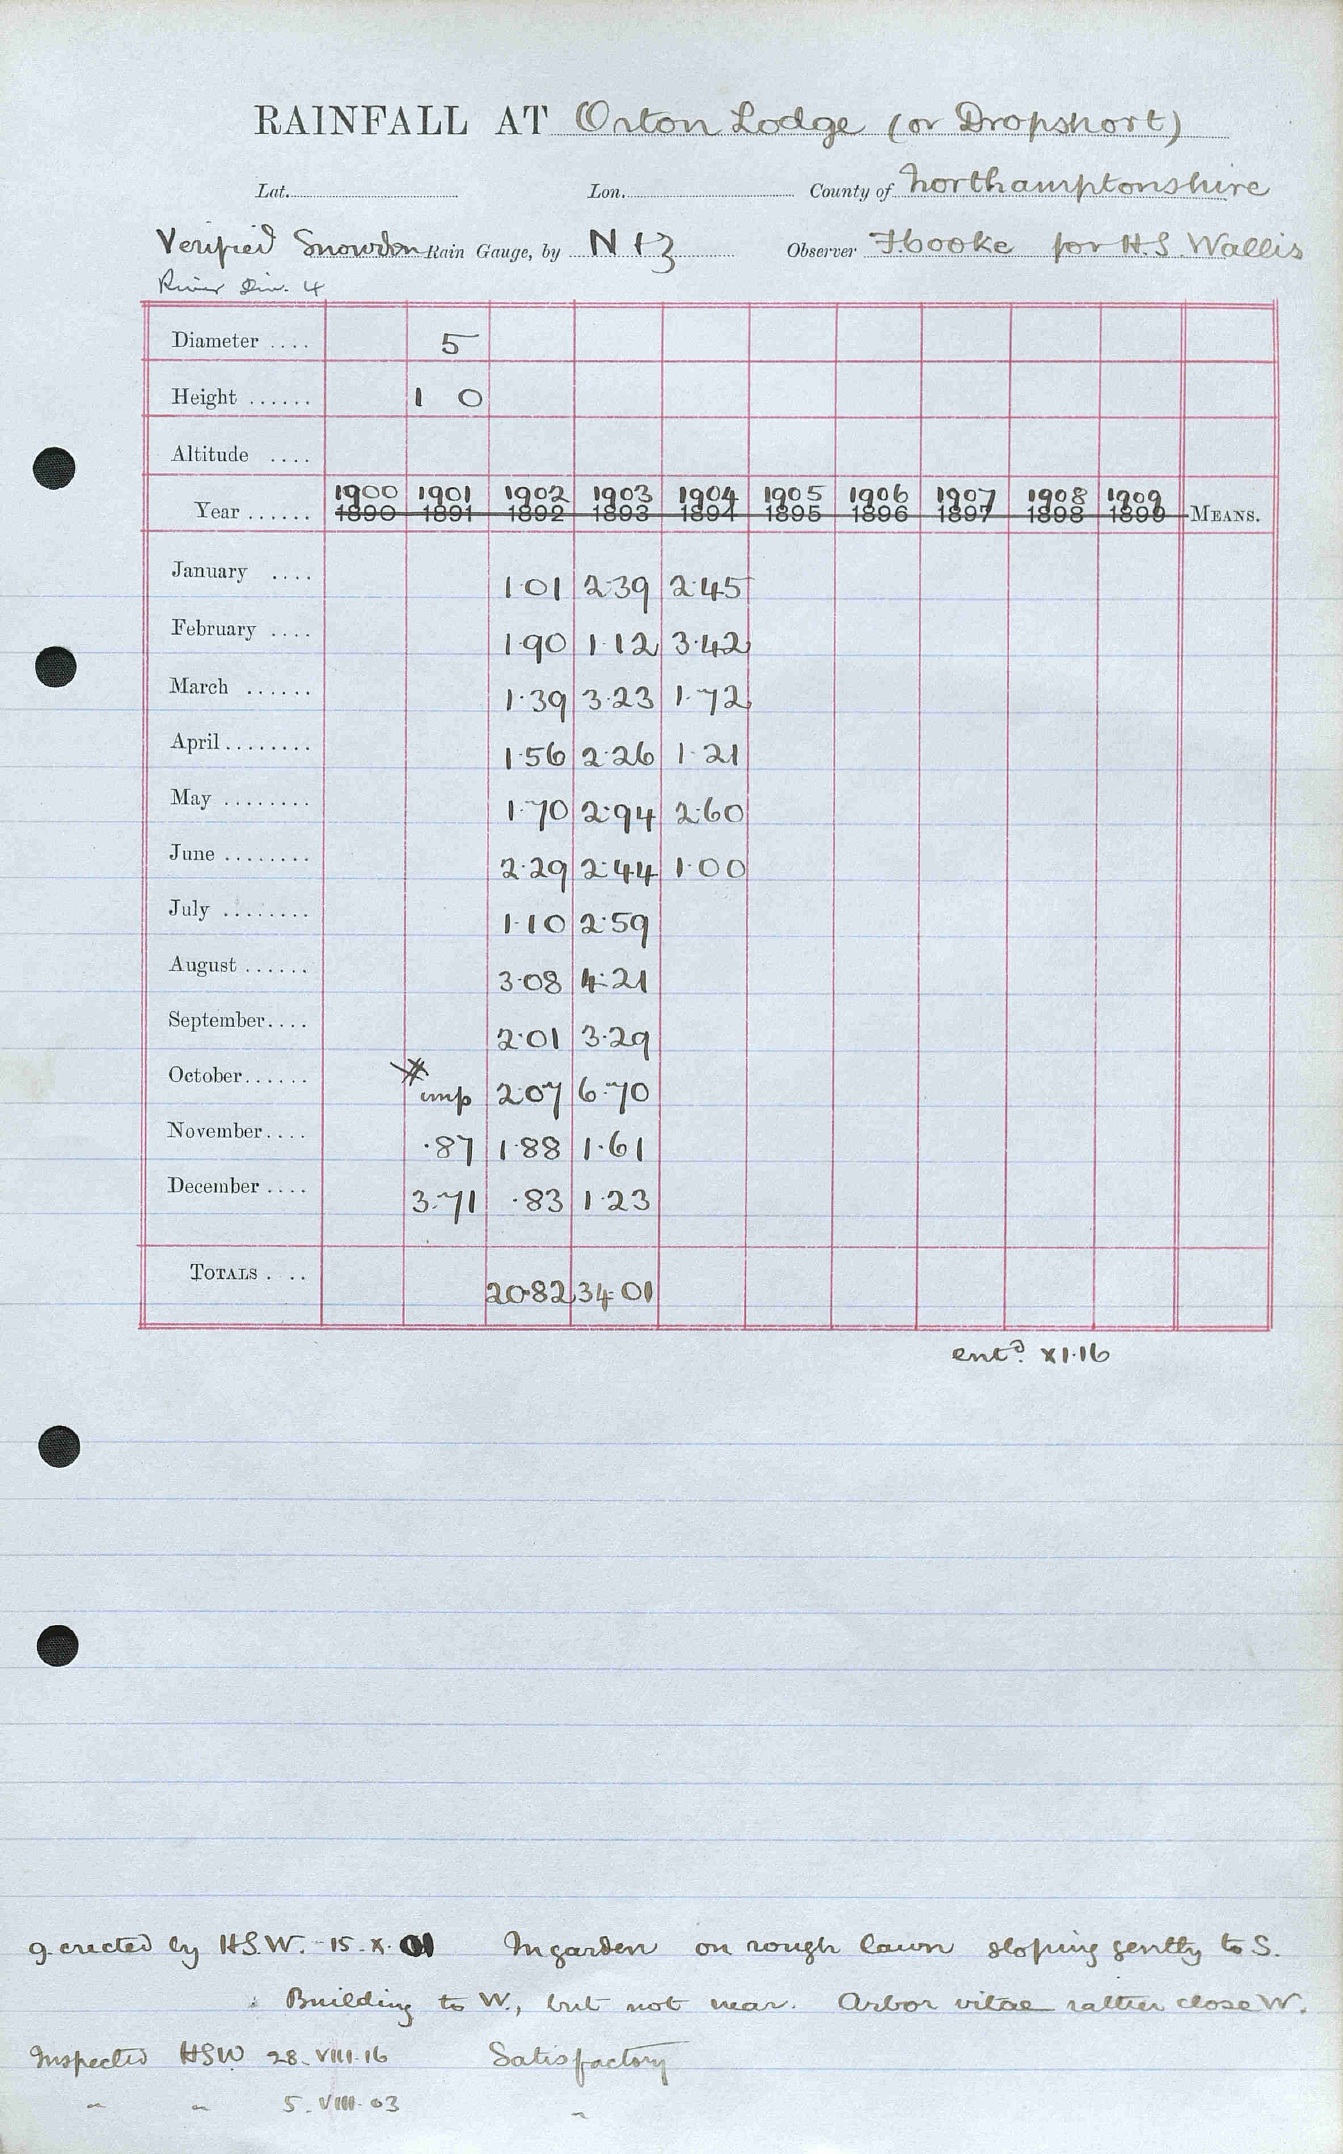 RAINFALL AT Orton Lodge (or Dropshort)
Lat. Lon. County of Northamptonshire
Verified Snowdon Rain Gauge, by N & Z Observer F. Cooke for H.S. Wallis
River Div. 4
Diameter .... 5
Height ...... 1 0
Altitude ....
1900 1901 1902 1903 1904 1905 1906 1907 1908 1909
Year ...... 1890 1891 1892 1893 1894 1895 1896 1897 1898 1899 MEANS.
January .... 1.01 2.39 2.45
February .... 1.90 1.12 3.42
March ...... 1.39 3.23 1.72
April ........ 1.56 2.26 1.21
May ........ 1.70 2.94 2.60
June ........ 2.29 2.44 1.00
July ........ 1.10 2.59
August ...... 3.08 4.21
September .... 2.01 3.29
October ...... imp 2.07 6.70
November .... .87 1.88 1.61
December .... 3.71 .83 1.23
TOTALS .... 20.82 34.01
entd. XI.16
g. erected by H.S.W. 15.X.01 In garden on rough lawn sloping gently to S.
Building to W., but not near. Arbor vitae rather close W.
Inspected HSW 28.VIII.16 Satisfactory
" " 5.VIII.03 "